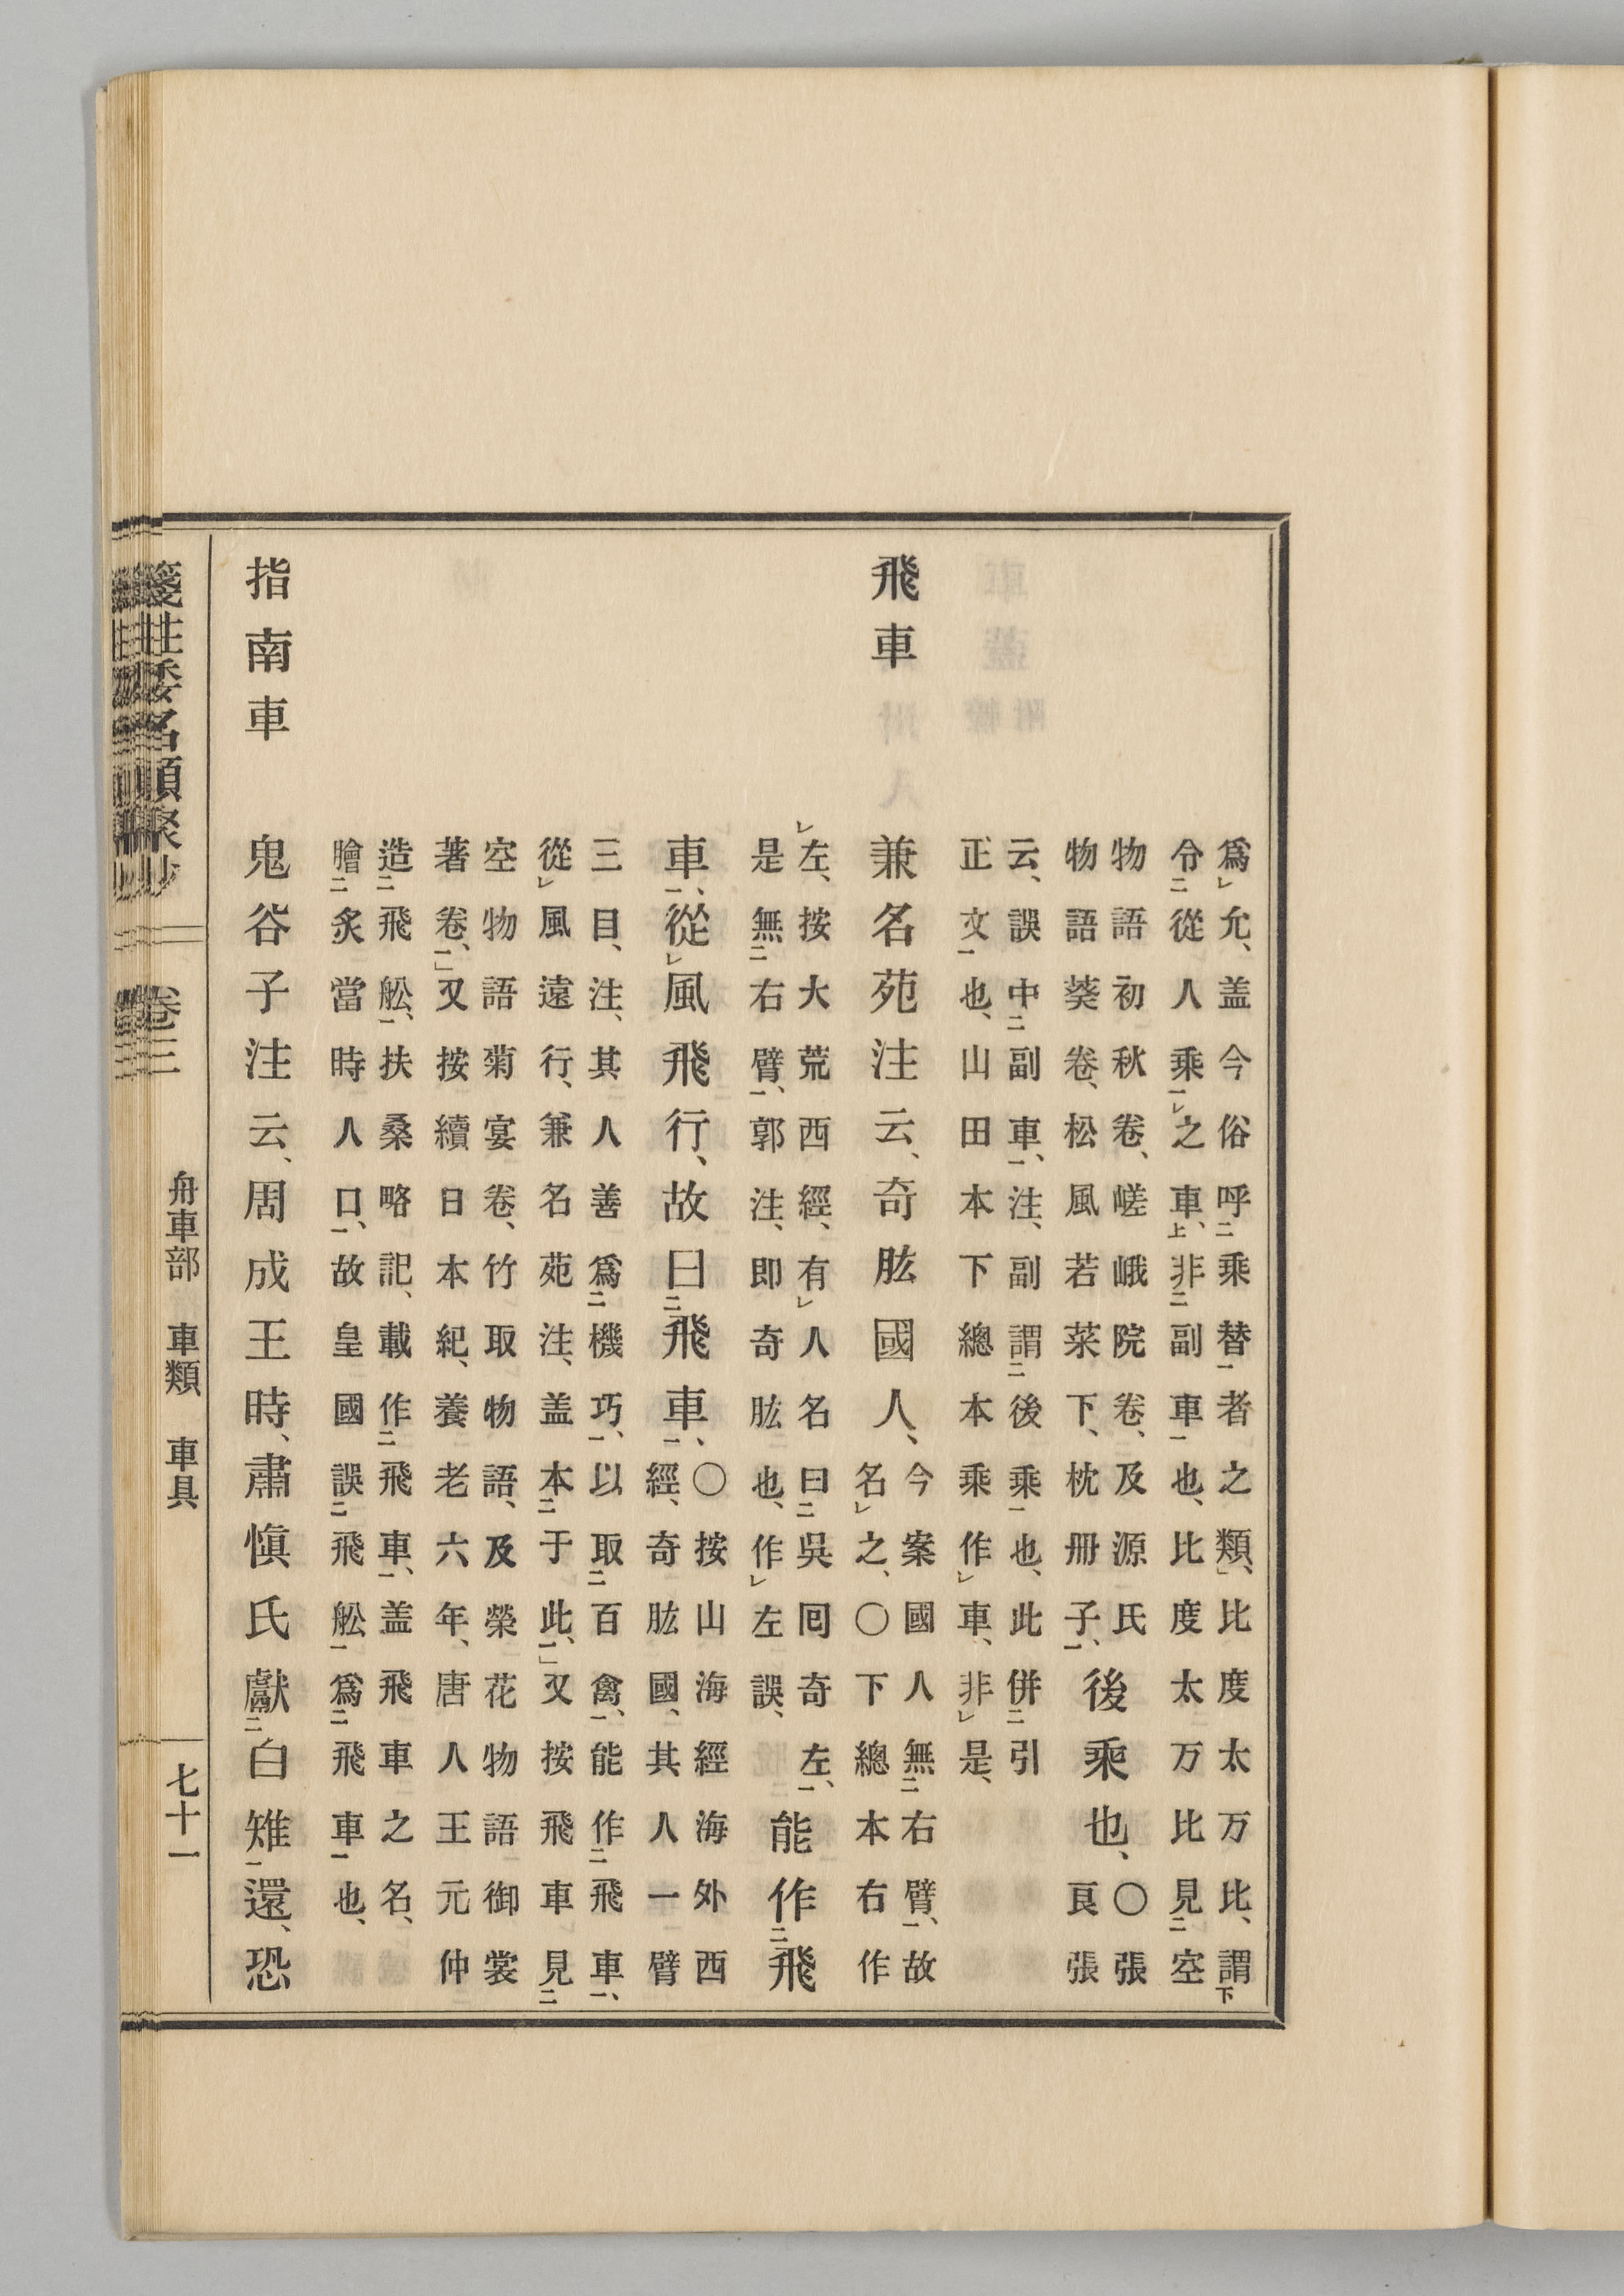 爲レ允、盖今俗呼二乘替一者之類、」比度太万比、謂下
令二從人乘一レ之車、上非二副車一也、比度太万比見二空
物語初秋卷、嵯峨院卷、及源氏
物語葵卷、松風若菜下、枕册子一、
後乘也、
〇張
良張
云、誤中二副車一、注、副謂二後乘一也、此併二引
正文一也、山田本下總本乘作レ車、非レ是、
飛車
兼名苑注云、奇肱國人、
今案國人無二右臂一、故
名レ之、〇下總本右作
レ左、按大荒西經、有レ人名曰二吳囘奇左一、
是無二右臂一、郭注、即奇肱也、作レ左誤、
能作二飛
車一、從レ風飛行、故曰二飛車一、
〇按山海經海外西
經、奇肱國、其人一臂
三目、注、其人善爲二機巧一、以取二百禽一、能作二飛車一、
從レ風遠行、兼名苑注、盖本二于此一、」又按飛車見二
空物語菊宴卷、竹取物語、及榮花物語御裳
著卷一、」又按續日本紀、養老六年、唐人王元仲
造二飛舩一、扶桑略記、載作二飛車一、盖飛車之名、
膾二炙當時人口一、故皇國誤二飛舩一爲二飛車一也、
指南車
鬼谷子注云、周成王時、肅愼氏獻二白雉一還、恐
倭名聚抄 卷三 舟車部 車類 車具 七十一